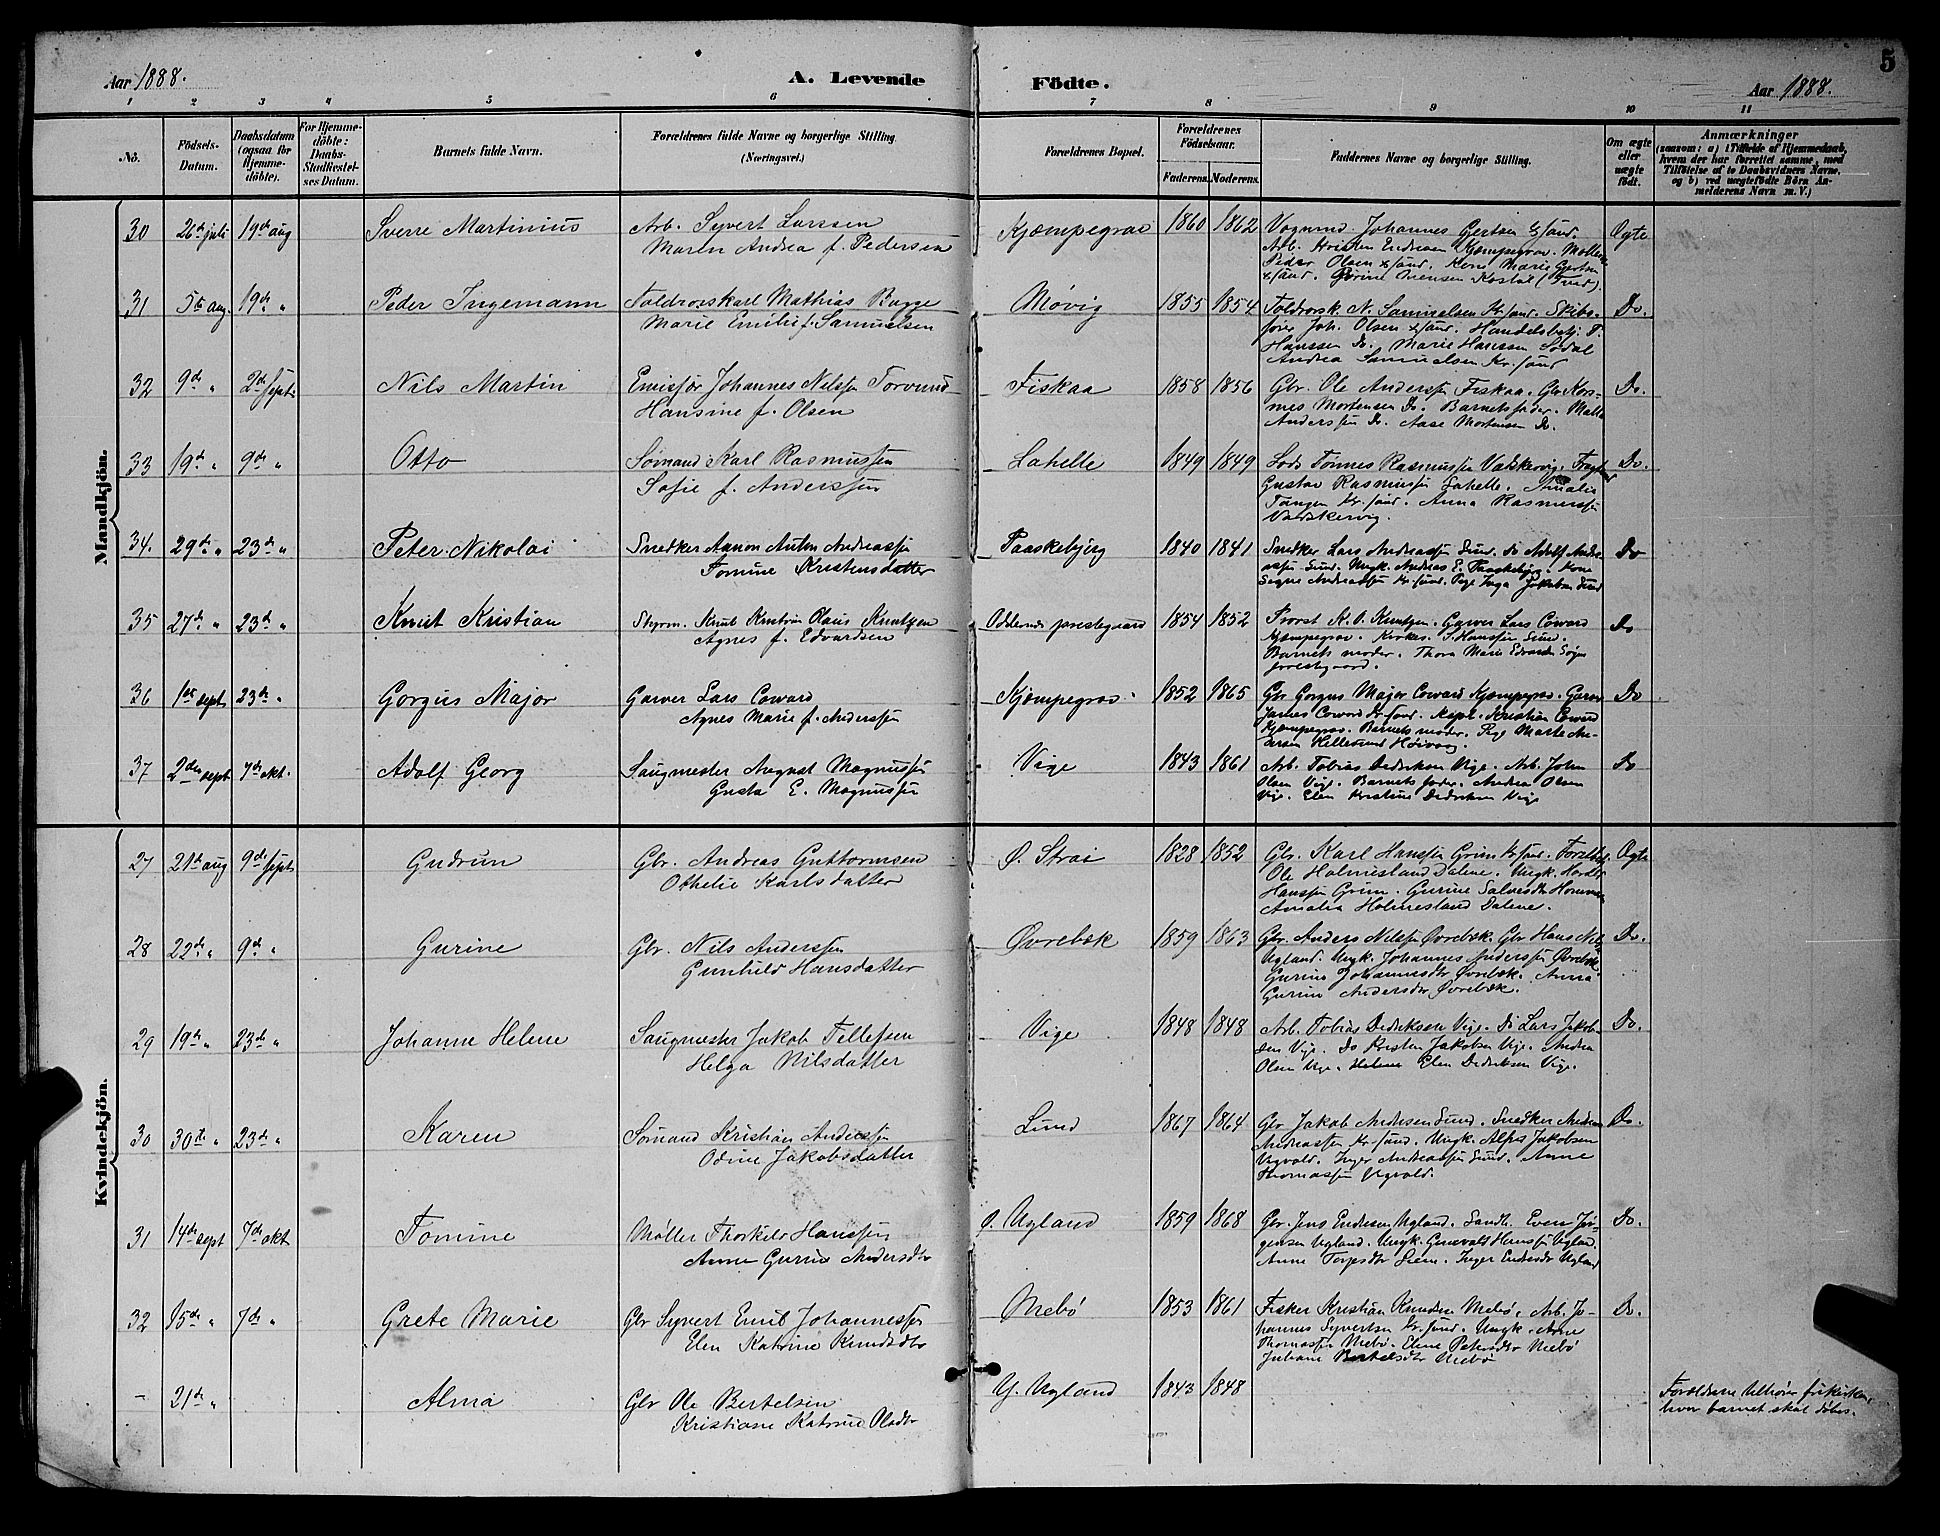 Aar 1888. A. Levende Födte. Aar 1888. 5
1 2 3 4 5 6 7 8 9 10 11
No. Födsels-Datum. Daabsdatum (ogsaa for Hjemme-döbte). For Hjemme-döbte: Daabs-Stadfæstel-ses Datum. Barnets fulde Navn. Forældrenes fulde Navne og borgerlige Stilling (Næringsvei.) Forældrenes Bopæl. Forældrenes Födselsaar. Faderens. Moderens. Faddernes Navne og borgerlige Stilling. Om ægte eller uægte födt. Anmærkninger (saasom: a) i Tilfælde af Hjemmedaab, hvem der har forrettet samme, med Tilföielse af to Daabsvidners Navne, og b) ved uægtefödte Börn An-melderens Navn m. V.)
Mandkjön.
30 26de juli 19de aug Sverre Martinius Arb. Syvert Larssen
Maren Andrea f. Pedersen
Kjæmpegrav 1860 1862 Vognmd. Johannes Gertsen Kr.sand.
Arb. Kristen Endresen Kjæmpegrav.
Peder Olsen Kr.sand. Kone Marie Gertsen
Kr.sand. Ægte
31 5te aug. 19de " Peder Ingemann Toldrorskarl Mathias Bugge
Marie Emilie f. Samuelsen
Møvig 1855 1854 Toldrorsk. N. Samuelsen Kr.sand. Skibs-
fører Joh. Olsen Kr.sand. Handelsbetj. T.
Hanssen Do. Marie Hanssen Lodal
Andrea Samuelsen Kr.sand Do.
32 9de " 2de Sept. Nils Martin Emissær Johannes Nilsen Torvund
Hansine f. Olsen
Fiskaa 1858 1856 Gbr. Ole Anderssen Fiskaa. Gbr. Ras-
mus Mortensen Do. Barnets fader. Malla
Anderssen Do. Aase Mortensen Do. Do.
33 19de " 9de " Otto Sømand Karl Rasmussen
Sofie f. Anderssen
Lahelle 1849 1849 Lods Tønnes Rasmussen Vadskervig.
Gustav Rasmussen Lahelle. Amalie
Tangen Kr.sand. Anna Rasmussen
Vadskervig. Do.
34. 29de " 23de " Peter Nikolai Snedker Aanon Anton Andreassen
Tomine Kristensdatter
Paaskebjerg 1840 1841 Snedker Lars Andreassen Lund. Do Adolf Andre-
assen Lund. Ungk. Andreas E. Paaskebjerg. Kone
Signe Andreassen Kr.sand. Pige Inga Jakobsen Lund Do
35 27de " 23de " Knut Kristian Styrm. Knut Kristian Olaus Knutzen
Agnes f. Edvardsen
Oddernes prestegaard 1854 1852 Provst K. O. Knutzen. Garver Lars Coward
Kjæmpegrav. Kirkes. S. Hanssen Lund.
Barnets moder. Thora Marie Edvardsen Søgne
prestegaard. Do
36 1ste sept 23de " Gorgus Major Garver Lars Coward
Agnes Marie f. Anderssen
Kjæmpegrav 1852 1865 Gbr Gorgus Major Coward Kjæmpegrav. Garver
James Coward Kr.sand. Kapt. Kristian Coward
Kjæmpegrav. Barnets moder. Pige Marte An-
dersen Hellesund Høivaag Do
37 2den sept 7de okt. Adolf Georg Saugmester August Magnussen
Gusta E. Magnussen
Vige 1843 1861 Arb. Tobias Dedriksen Vige. Arb. John
Olsen Vige. Barnets fader. Andrea Olsen
Vige. Elen Kristine Dedriksen Vige Do
Kvindekjön.
27 21de aug 9de Sept Gudrun Gbr. Andreas Guttormsen
Othelie Karlsdatter
Ø. Strai 1828 1852 Gbr. Karl Hanssen Grim Kr.sand.
Ole Holmesland Dalene. Ungk.
Hanssen Grim. Gurine Salvesdtr Hommen
Amalia Holmesland Dalene. Ægte
28 22de " 9de " Gurine Gbr. Nils Anderssen
Gunhild Hansdatter
Øvrebæk 1859 1863 Gbr. Anders Nilssen Øvrebæk. Gbr Hans Nils
Ugland. Ungk. Johannes Anderssen Øvrebæk.
Gurine Johannesdtr Øvrebæk. Anna
Gurine Andersdtr Øvrebæk. Do.
29 19de " 23de " Johanne Helene Saugmester Jakob Tellefsen
Helga Nilsdatter
Vige 1848 1848 Arb. Tobias Dedriksen Vige. Do Lars Jakob-
sen Vige. Do Kristen Jakobsen Vige. Andrea
Olsen Vige. Helene Elen Dedriksen Vige. Do.
30 30te " 23de " Karen Sømand Kristian Anderssen
Odine Jakobsdatter
Lund 1867 1864 Gbr Jakob Andersen Lund. Snedker Andreas
Andreassen Kr.sand. Ungk. Alfred Jakobsen
Vigvold. Inger Andreassen Lund. Anne
Thomassen Vigvold. Do.
31 14de sept 7de okt Tomine Møller Thorkild Hanssen
Anne Gurine Andersdtr
Ø. Ugland 1859 1868 Gbr. Jens Endresen Ugland. Sandb. Even Jør-
gensen Ugland. Ungk. Gunvald Hanssen Ugland
Anne Torjesdtr Liene. Inger Endresdtr Ugland Do.
32 15de " 7de " Grete Marie Gbr Syvert Emil Johannessen
Elen Katrine Knudsdtr
Mebø 1853 1861 Fisker Kristian Knudsen Mebø. Arb. Jo-
hannes Syvertsen Kr.sand. Ungk. Arne
Thomassen Mebø. Elene Petersdtr Mebø
Juliane Bertelsdtr Mebø Do.
- 21de " Alma Gbr Ole Bertelsen
Kristiane Katrine Olsdtr
Y. Ugland 1843 1848 Forældrene tilhører frikirken,
hvor barnet skal døbes.